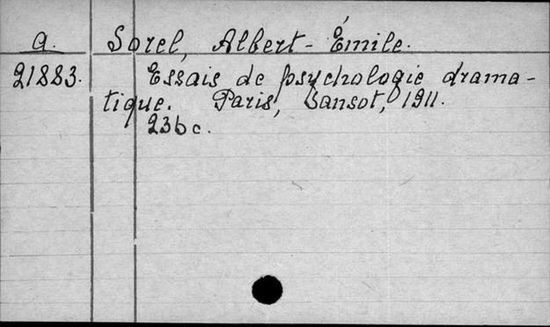 a. Sorel, Albert-Émile.
21883. Essais de psychologie drama-
tique. Paris, Sansot, 1911.
236 c.